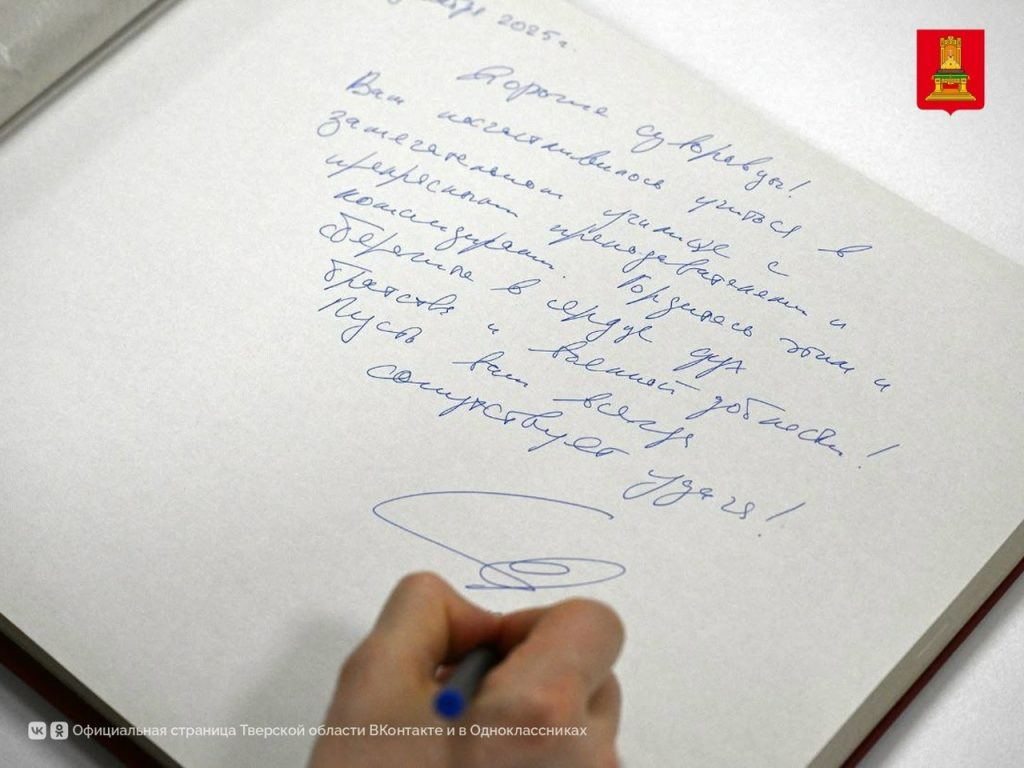 2025 г.
Дорогие суворовцы!
Вам посчастливилось учиться в
замечательном училище с
прекрасными преподавателями и
командирами. Гордитесь этим и
сберегите в сердце дух
братства и военной доблести!
Пусть вам всегда
сопутствует удача!
Официальная страница Тверской области ВКонтакте и в Одноклассниках